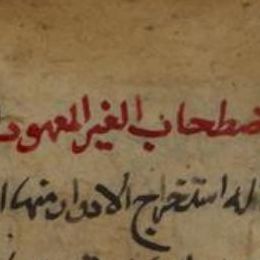 ضطحاب الغير المعهود
له استخراج الادوار منها